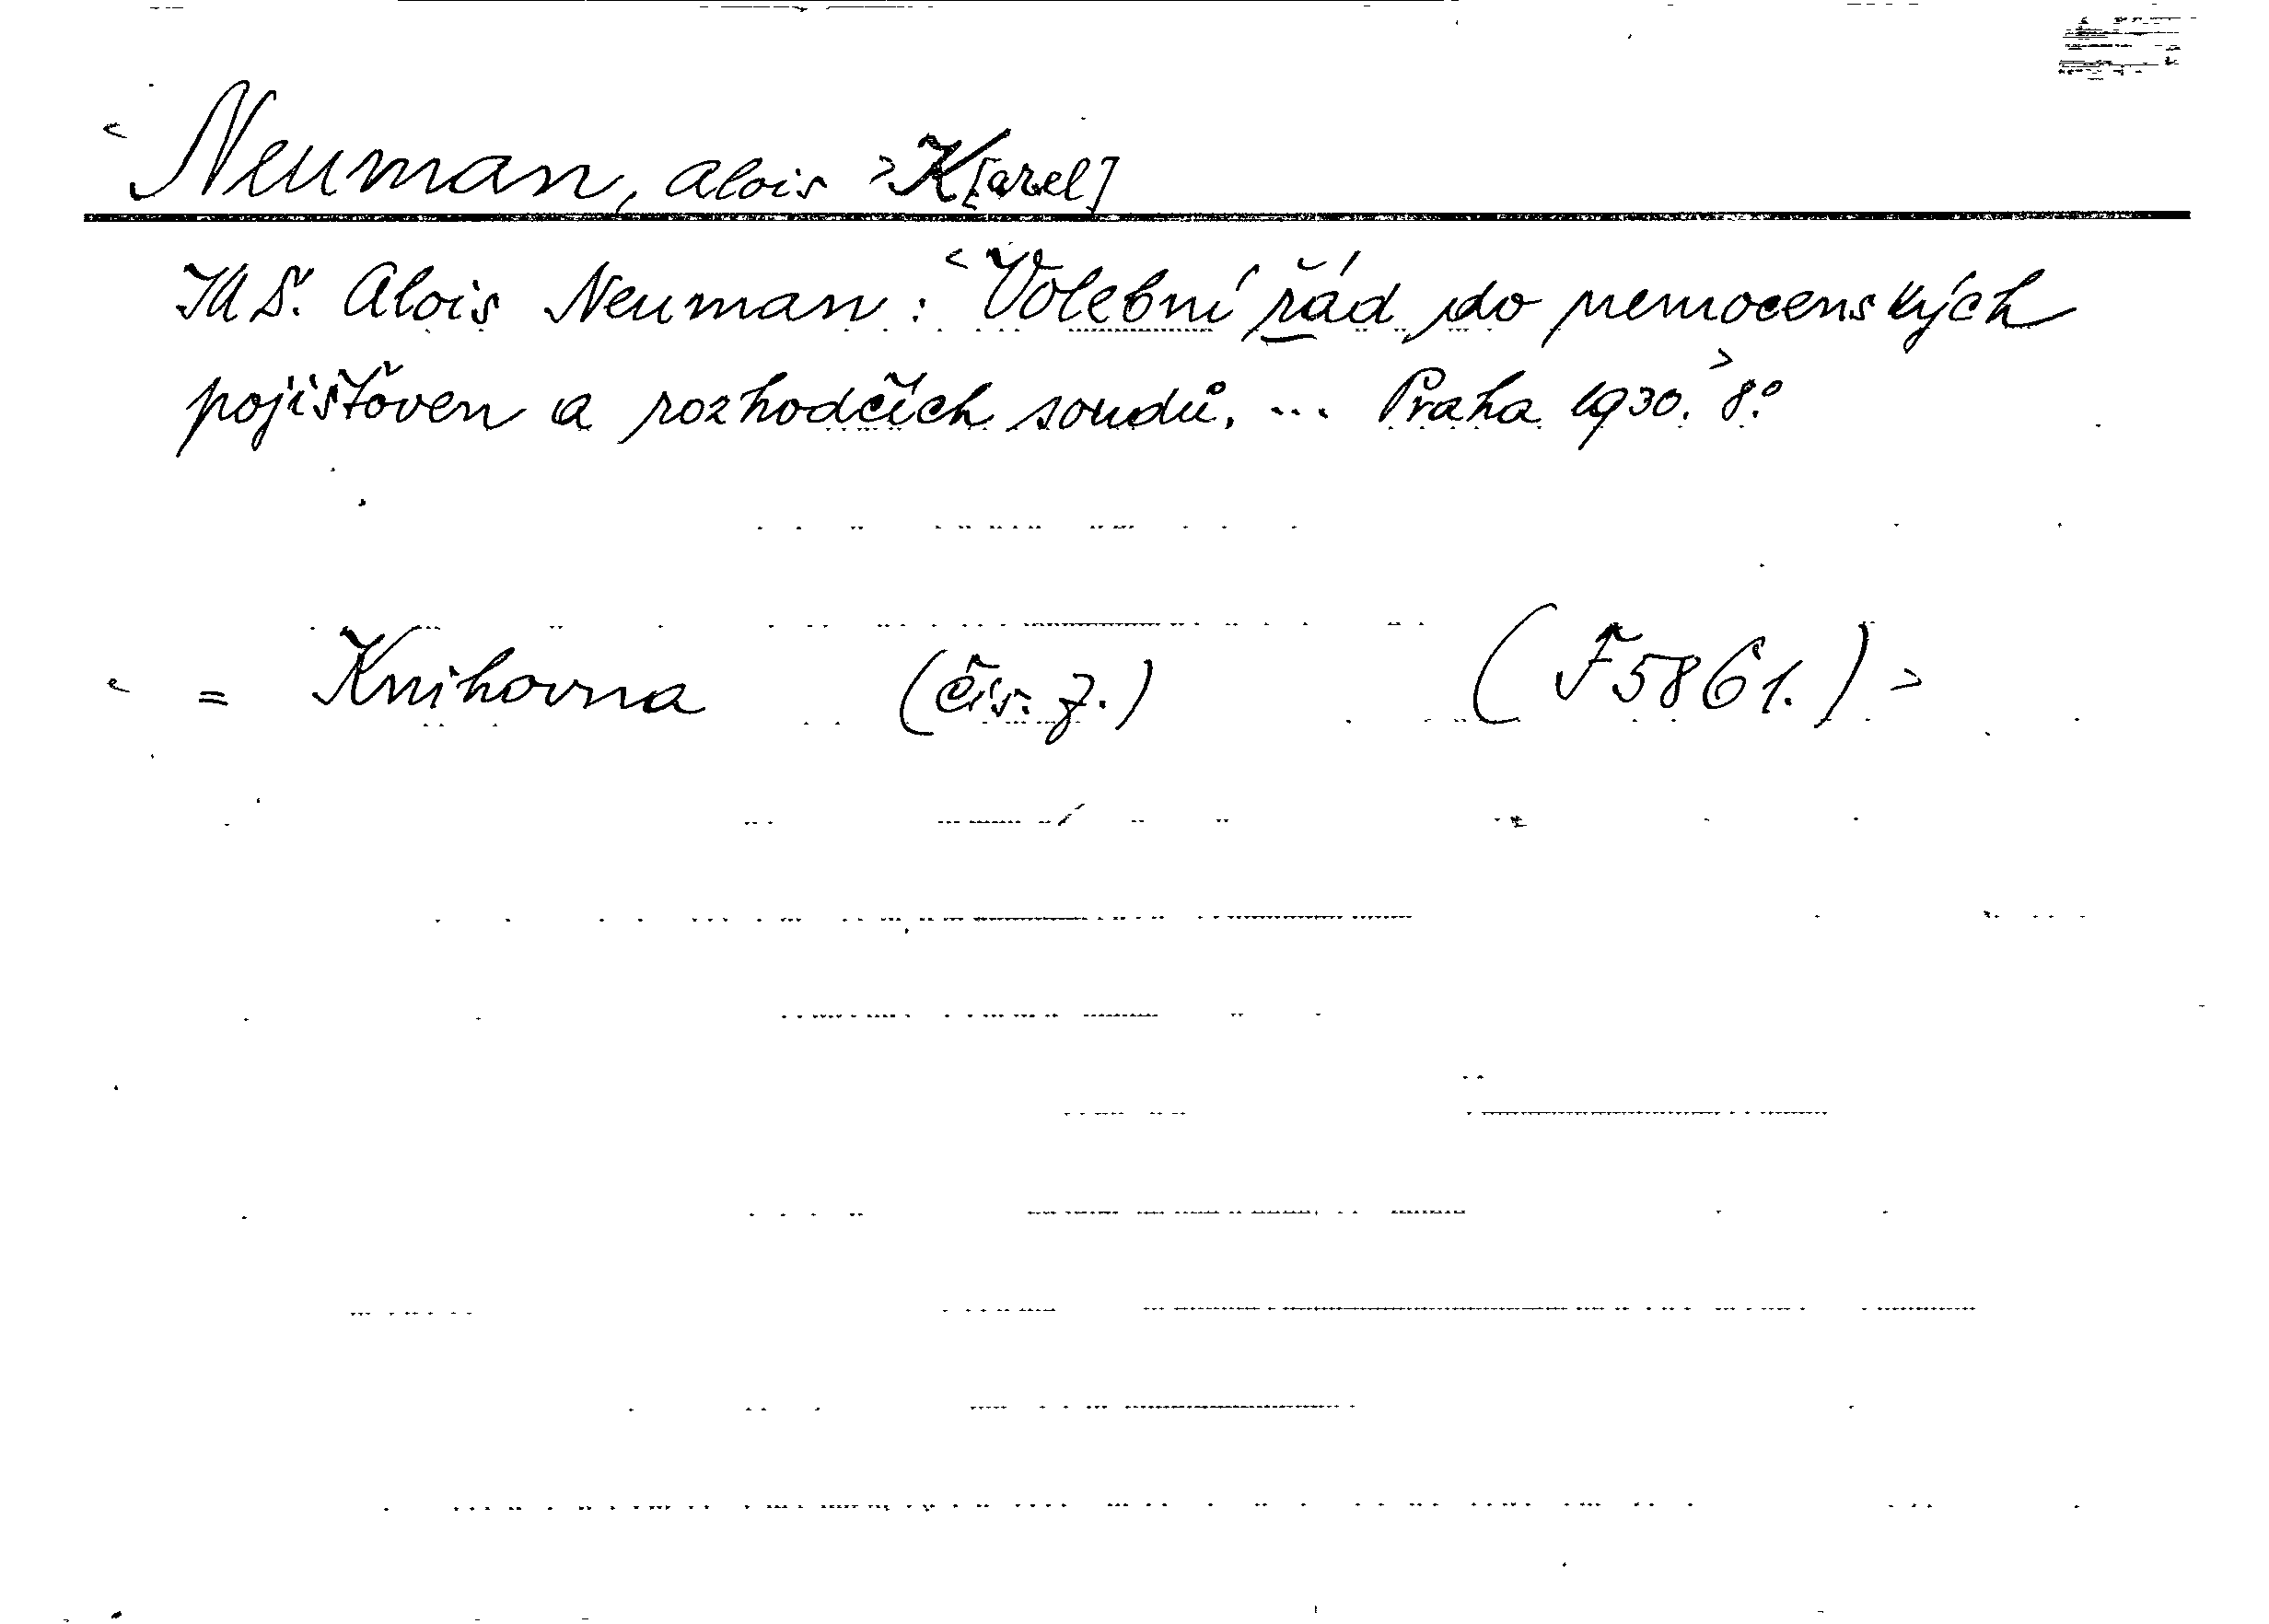 < Neuman, Alois > K[arel]
Alois Neuman: < Volební řád do nemocenských
pojišťoven a rozhodčích soudů. ... Praha 1930. > 8°.
< = Knihovna (čís. 7.) (F 5861.) >